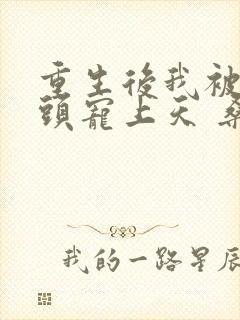 重生後我被
頭寵上天
我的一路星辰